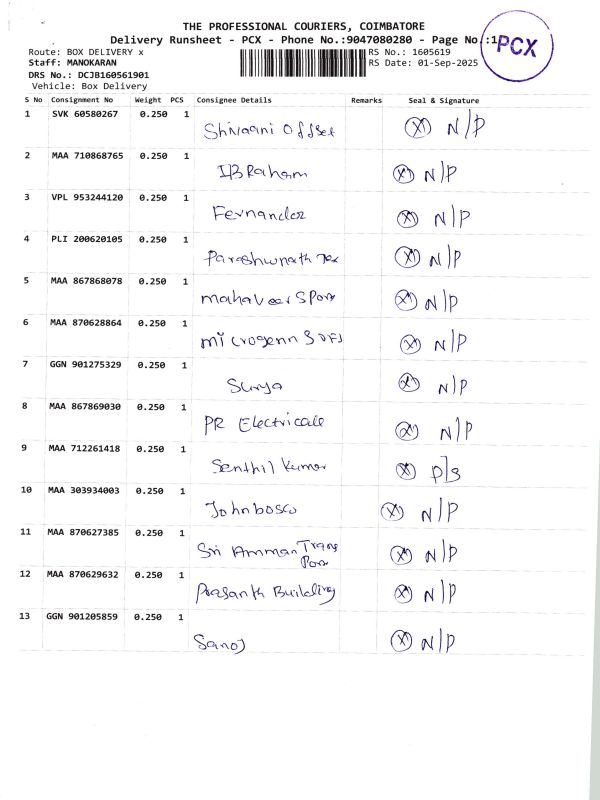 THE PROFESSIONAL COURIERS, COIMBATORE
Delivery Runsheet - PCX - Phone No.:9047080280 - Page No.:1
PCX
Route: BOX DELIVERY x RS No.: 1605619
Staff: MANOKARAN RS Date: 01-Sep-2025
DRS No.: DCJB160561901
Vehicle: Box Delivery
S No Consignment No Weight PCS Consignee Details Remarks Seal & Signature
1 SVK 60580267 0.250 1 Shivaani Offset (X) N/P
2 MAA 710868765 0.250 1 IBRaham (X) N/P
3 VPL 953244120 0.250 1 Fernandez (X) N/P
4 PLI 200620105 0.250 1 Parashwnath Tex (X) N/P
5 MAA 867868078 0.250 1 mahaveer SPorx (X) N/P
6 MAA 870628864 0.250 1 microgenn (X) N/P
7 GGN 901275329 0.250 1 Surya (X) N/P
8 MAA 867869030 0.250 1 PR Electricale (X) N/P
9 MAA 712261418 0.250 1 Senthil Kumar (X) P/S
10 MAA 303934003 0.250 1 Johnbosco (X) N/P
11 MAA 870627385 0.250 1 Sri Amman Trans Porx (X) N/P
12 MAA 870629632 0.250 1 Prasanth Building (X) N/P
13 GGN 901205859 0.250 1 Sanoj (X) N/P